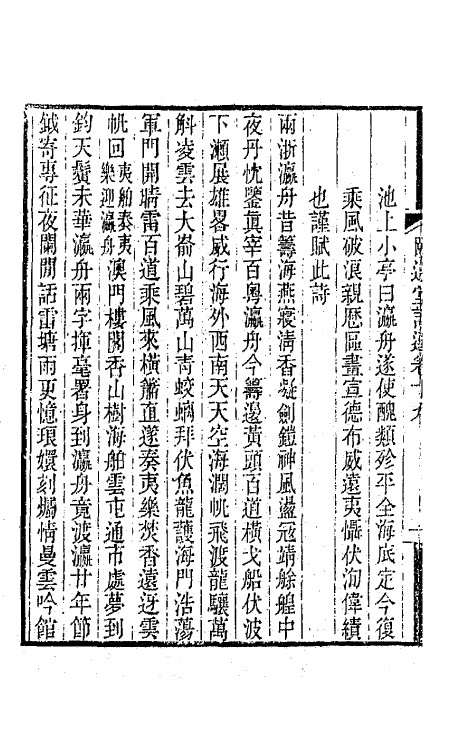 池上小亭曰瀛舟遂使醜類殄平全海底定今復
乘風破浪親厯區畫宣德布威遠夷懾伏洵偉績
也謹賦此詩
兩浙瀛舟昔籌海燕寢清香凝劍鎧神風盪冦靖艅艎中
夜丹忱鑒真宰百粵瀛舟今籌邊黃頭百道橫戈船伏波
下瀨展雄畧威行海外西南天天空海濶帆飛渡龍驤萬
斛凌雲去大崳山碧萬山青蛟螭拜伏魚龍護海門浩蕩
軍門開晴雷百道乘風來橫簫直遂奏夷樂焚香遠迓雲
帆回夷舶奏夷樂迎瀛舟澳門樓閣香山樹海舶雲屯通市處夢到
鈞天鬢未華瀛舟兩字揮毫署身到瀛舟竟渡瀛廿年節
鉞寄專征夜闌閒話雷塘雨更憶琅嬛刻燭情曼雲吟館